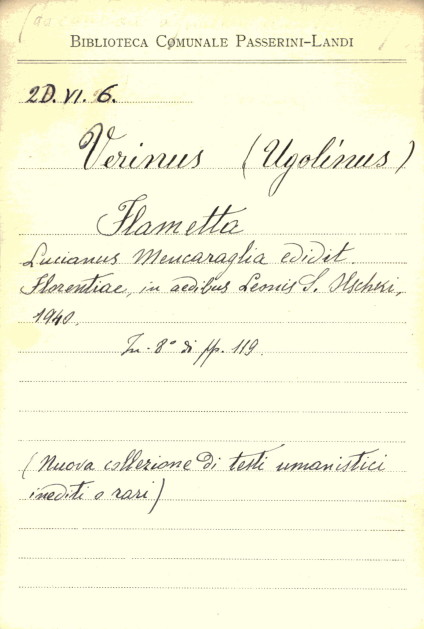 BIBLIOTECA COMUNALE PASSERINI-LANDI
2D. VI. 6.
Verinus (Ugolinus)
Flametta
Lucianus Mencaraglia edidit.
Florentiae, in aedibus Leonis S. Olschki,
1940.
In-8° di pp. 119.
(Nuova collezione di testi umanistici
inediti o rari)